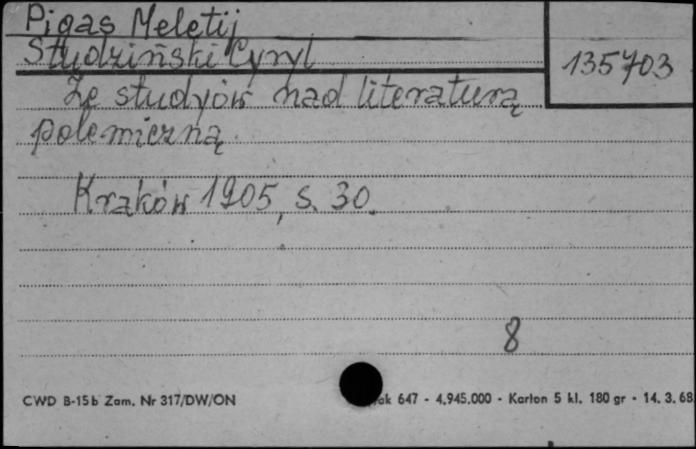 Pigas Meletij
Studziński Cyryl
135703
Ze studyów nad literaturą
polemiczną.
Kraków 1905, s. 30.
8
CWD B-15b Zam. Nr 317/DW/ON
647 - 4.945.000 - Karton 5 kl. 180 gr - 14. 3. 68